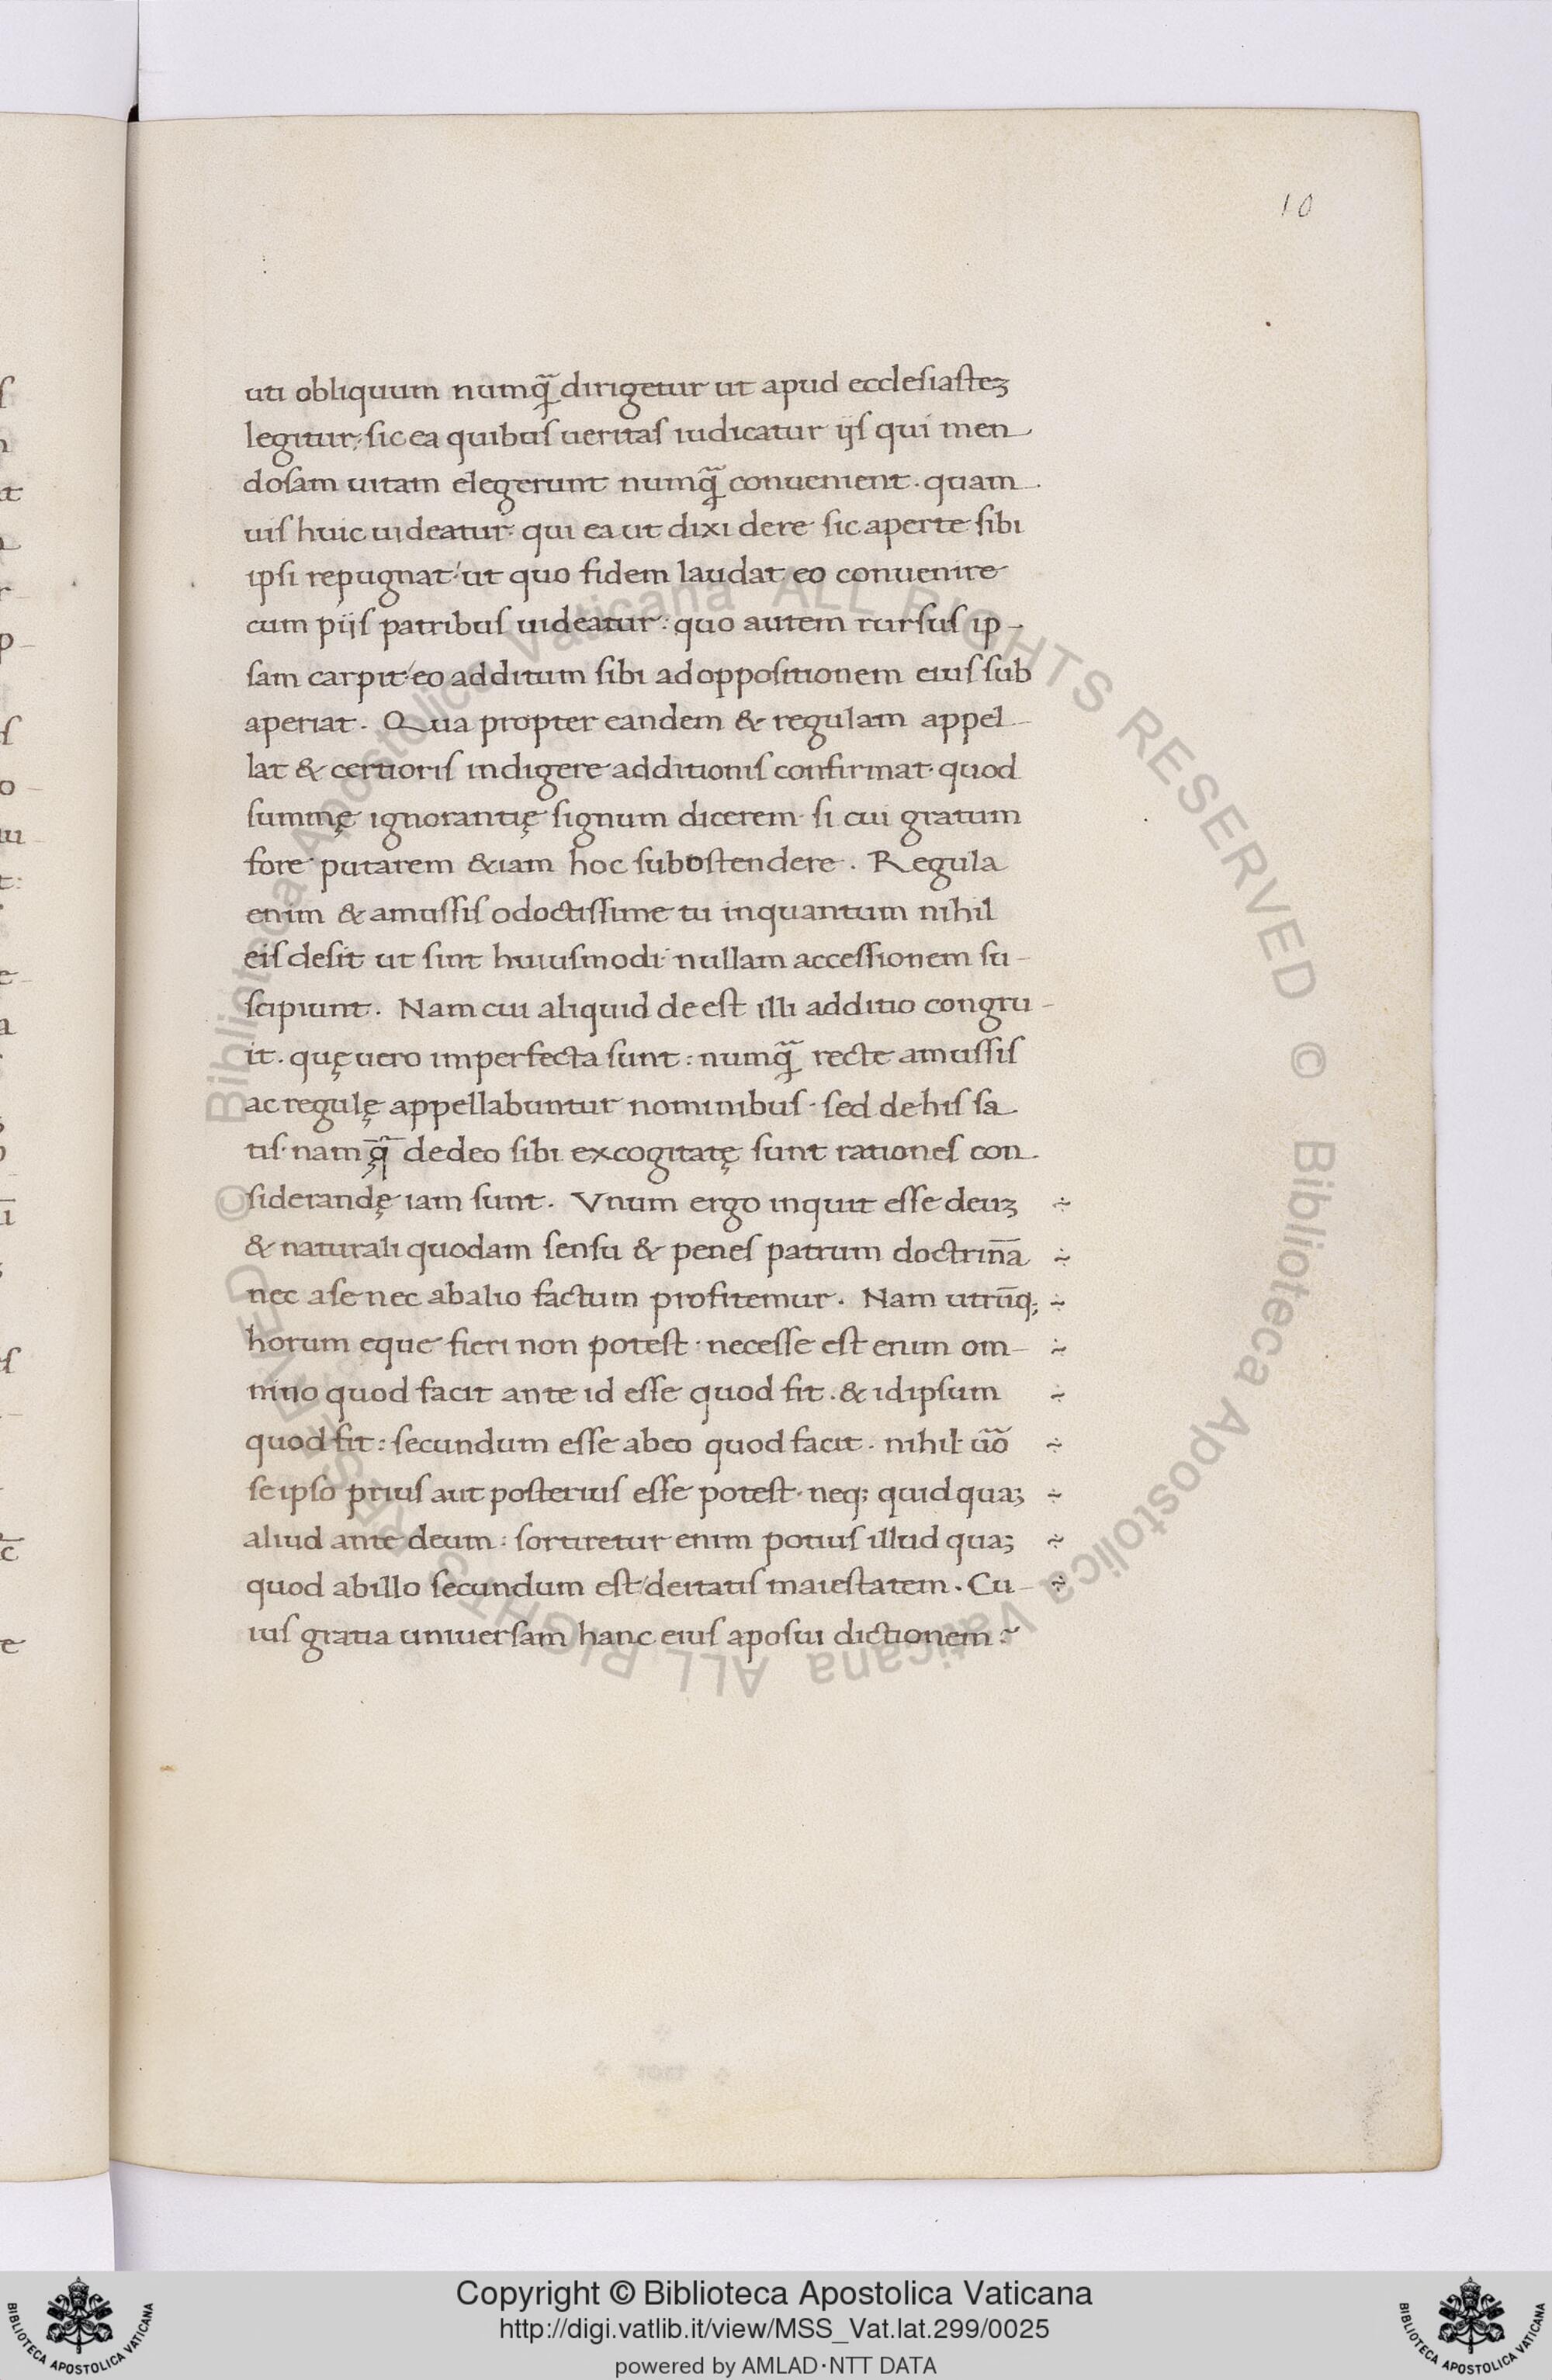 10
uti obliquum numq̃ dirigetur ut apud ecclesiastez
legitur; sic ea quibus ueritas iudicatur ijs qui men
dosam uitam elegerunt numq̃ conuenient. quam
uis huic uideatur· qui ea ut dixi dere sic aperte sibi
ipsi repugnat· ut quo fidem laudat eo conuenire
cum pijs patribus uideatur: quo autem rursus ip-
sam carpit· eo additum sibi ad oppositionem eius sub
aperiat. Qua propter eandem & regulam appel-
lat & certioris indigere additionis confirmat· quod
summę ignorantię signum dicerem· si cui gratum
fore putarem &iam hoc subostendere. Regula
enim & amussis o doctissime tu inquantum nihil
eis desit ut sint huiusmodi· nullam accessionem su-
scipiunt. Nam cui aliquid de est illi additio congru-
it. quę uero imperfecta sunt: numq̃ recte amussis
ac regulę appellabuntur nominibus· sed de his sa
tis· nam q̃ de deo sibi excogitatę sunt rationes con
siderandę iam sunt. Vnum ergo inquit esse deuz ÷
& naturali quodam sensu & penes patrum doctrinā ÷
nec a se nec ab alio factum profitemur. Nam utrūq; ÷
horum eque fieri non potest· necesse est enim om- ÷
nino quod facit ante id esse quod fit. & id ipsum ÷
quod fit: secundum esse ab eo quod facit. nihil ũo ÷
se ipso prius aut posterius esse potest· neq; quidquaz ÷
aliud ante deum: sortiretur enim potius illud quaz ÷
quod ab illo secundum est deitatis maiestatem. Cu- ÷
ius gratia uniuersam hanc eius aposui dictionem:~
Copyright © Biblioteca Apostolica Vaticana
http://digi.vatlib.it/view/MSS_Vat.lat.299/0025
powered by AMLAD·NTT DATA